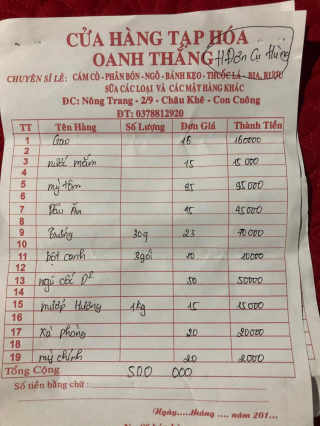 CỬA HÀNG TẠP HÓA
OANH THẮNG
H. Đơn Cụ Hùng
CHUYÊN SỈ LẺ: CÁM CÒ - PHÂN BÓN - NGÔ - BÁNH KẸO - THUỐC LÁ - BIA, RƯỢU
SỮA CÁC LOẠI VÀ CÁC MẶT HÀNG KHÁC
ĐC: Nông Trang - 2/9 - Châu Khê - Con Cuông
ĐT: 0378812920
TT Tên Hàng Số Lượng Đơn Giá Thành Tiền
1 Gạo 16 160000
2
3 nước mắm 15 15 000
4
5 mỳ tôm 95 95 000
6
7 Dầu Ăn 45 45000
8
9 Trứng 30q 23 70 000
10
11 bột canh 3gói 10 10000
12
13 ngũ cốc D² 50 50000
14
15 mướp Hương 1kg 15 15 000
16
17 xà phòng 20 20000
18
19 mỳ chính 20 2000
Tổng Cộng 500 000
Số tiền bằng chữ:
Ngày.....tháng .... năm 201...